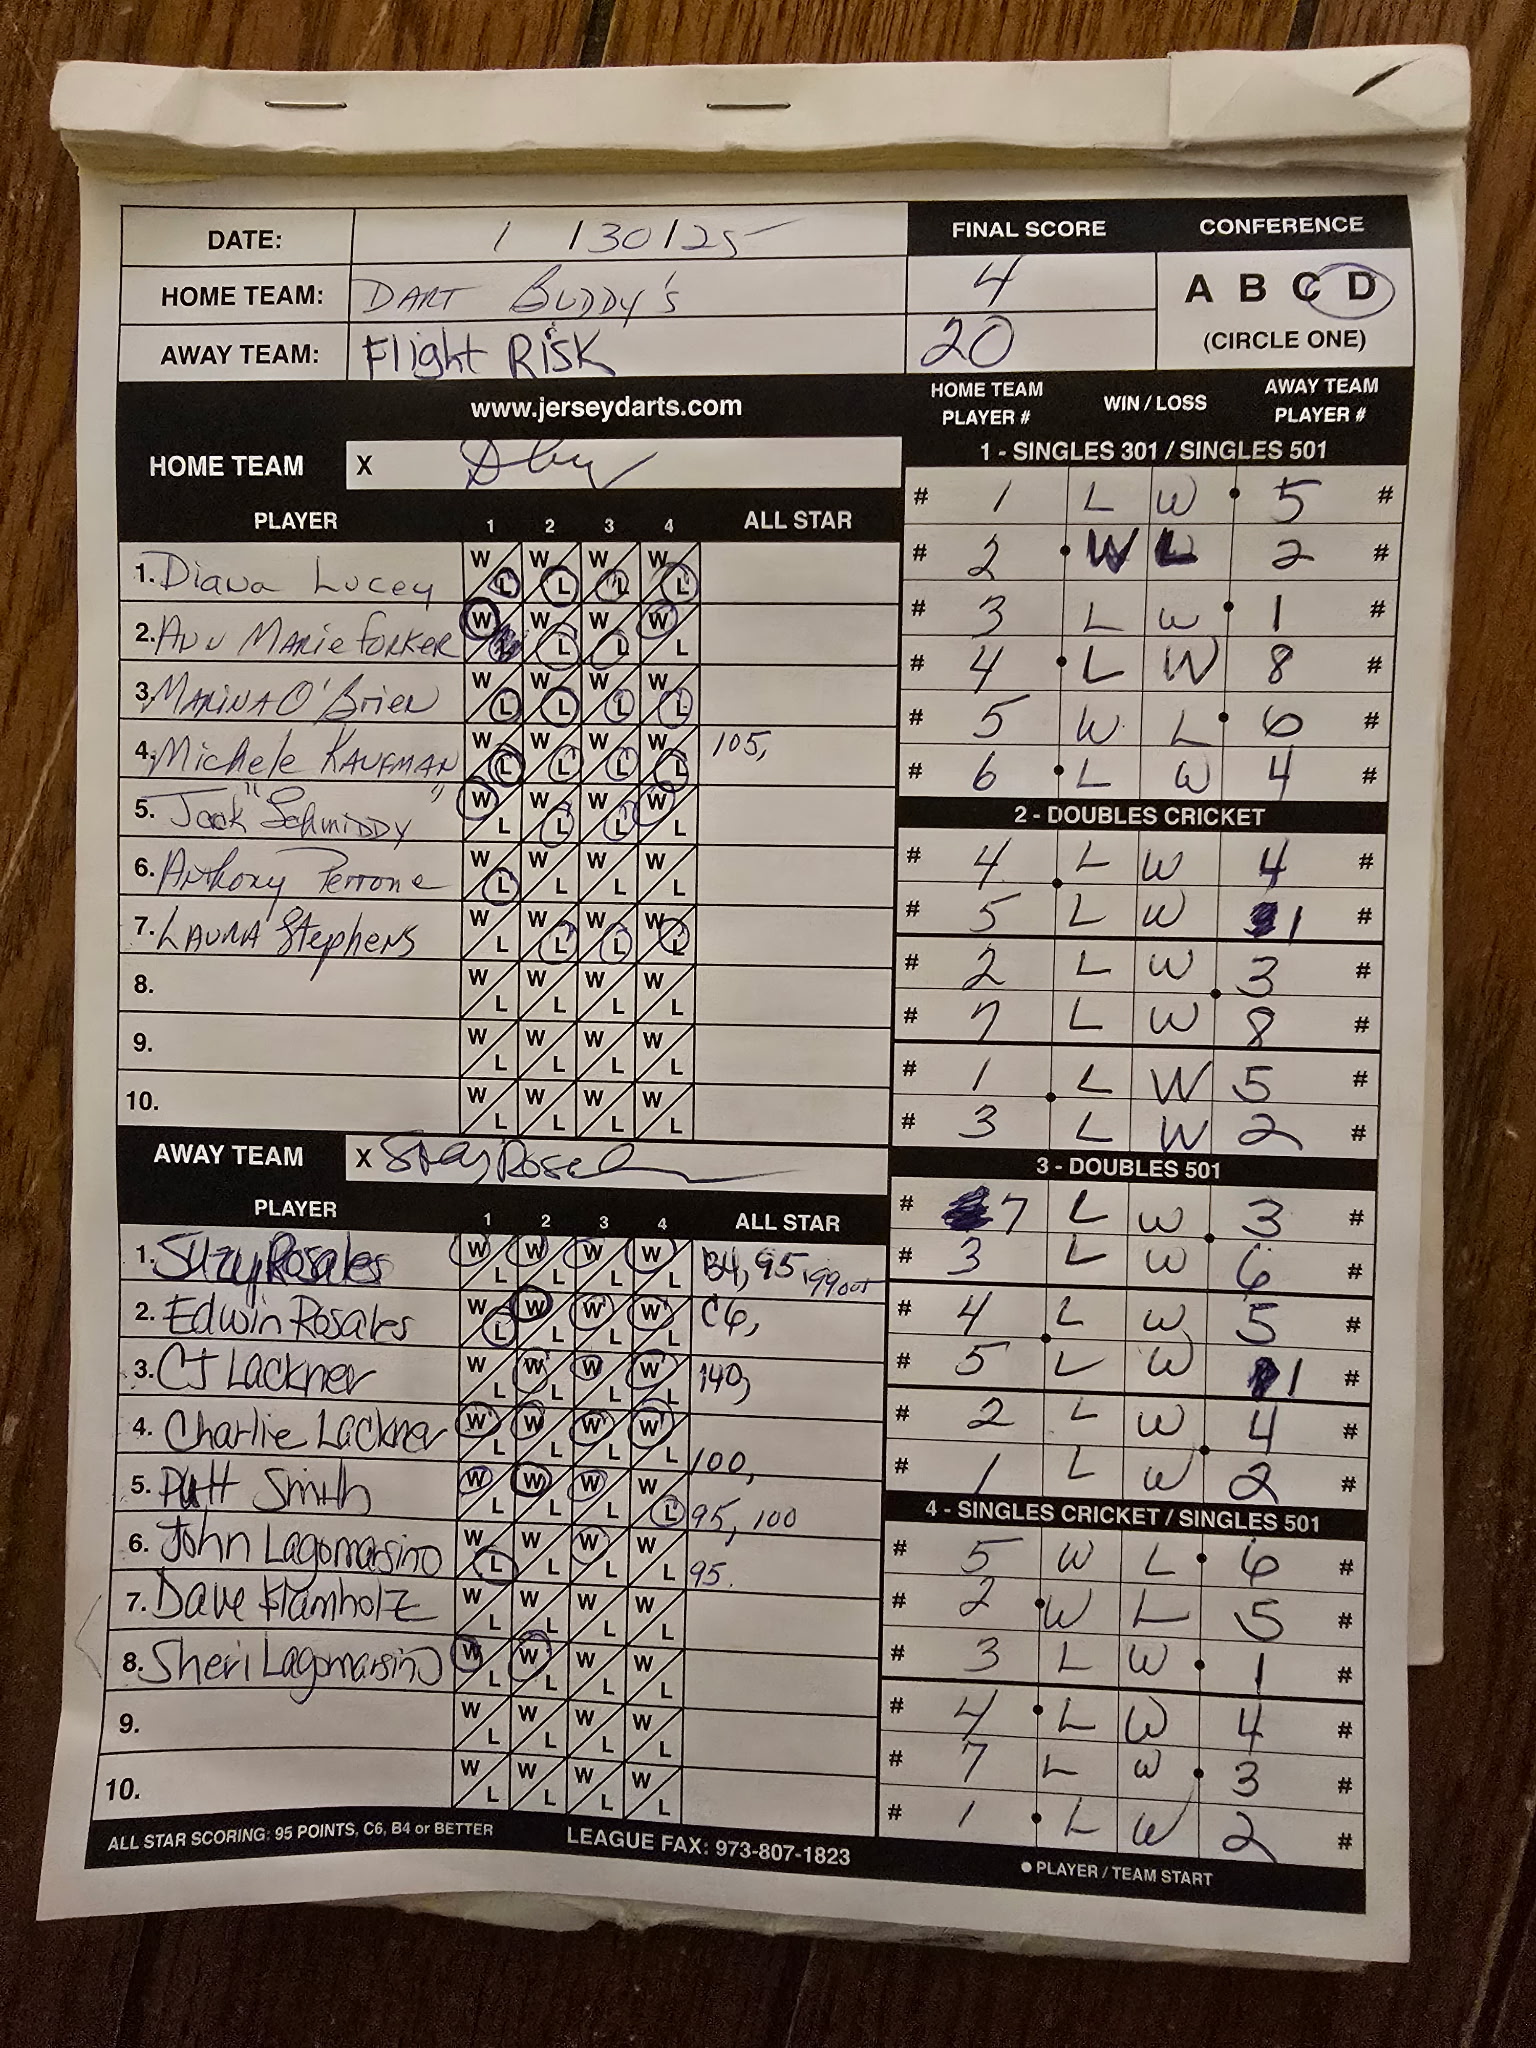 DATE: 1/30/25
HOME TEAM: DART BUDDY'S
AWAY TEAM: Flight Risk
FINAL SCORE
4
20
CONFERENCE
A B C D
(CIRCLE ONE)
www.jerseydarts.com
HOME TEAM X
PLAYER 1 2 3 4 ALL STAR
1. Diana Lucey W L W L W L W L
2. Ann Marie Forker W L W L W L W L
3. Marina O'Brien W L W L W L W L
4. Michele Kaufman W L W L W L W L 105,
5. Jack "Schmiddy" W L W L W L W L
6. Anthony Perrone W L W L W L W L
7. Laura Stephens W L W L W L W L
8. W L W L W L W L
9. W L W L W L W L
10. W L W L W L W L
AWAY TEAM X
PLAYER 1 2 3 4 ALL STAR
1. Suzy Rosales W L W L W L W L B4, 95, 99 out
2. Edwin Rosales W L W L W L W L C6,
3. CJ Lackner W L W L W L W L 140,
4. Charlie Lackner W L W L W L W L 100,
5. Patt Smith W L W L W L W L 95, 100
6. John Lagomarsino W L W L W L W L 95.
7. Dave W L W L W L W L
8. Sheri Lagomarsino W L W L W L W L
9. W L W L W L W L
10. W L W L W L W L
ALL STAR SCORING: 95 POINTS, C6, B4 or BETTER
LEAGUE FAX: 973-807-1823
HOME TEAM PLAYER # WIN / LOSS AWAY TEAM PLAYER #
1 - SINGLES 301 / SINGLES 501
# 1 L W 5 #
# 2 W L 2 #
# 3 L W 1 #
# 4 L W 8 #
# 5 W L 6 #
# 6 L W 4 #
2 - DOUBLES CRICKET
# 4 L W 4 #
# 5 L W 1 #
# 2 L W 3 #
# 7 L W 8 #
# 1 L W 5 #
# 3 L W 2 #
3 - DOUBLES 501
# 7 L W 3 #
# 3 L W 6 #
# 4 L W 5 #
# 5 L W 1 #
# 2 L W 4 #
# 1 L W 2 #
4 - SINGLES CRICKET / SINGLES 501
# 5 W L 6 #
# 2 W L 5 #
# 3 L W 1 #
# 4 L W 4 #
# 7 L W 3 #
# 1 L W 2 #
● PLAYER / TEAM START